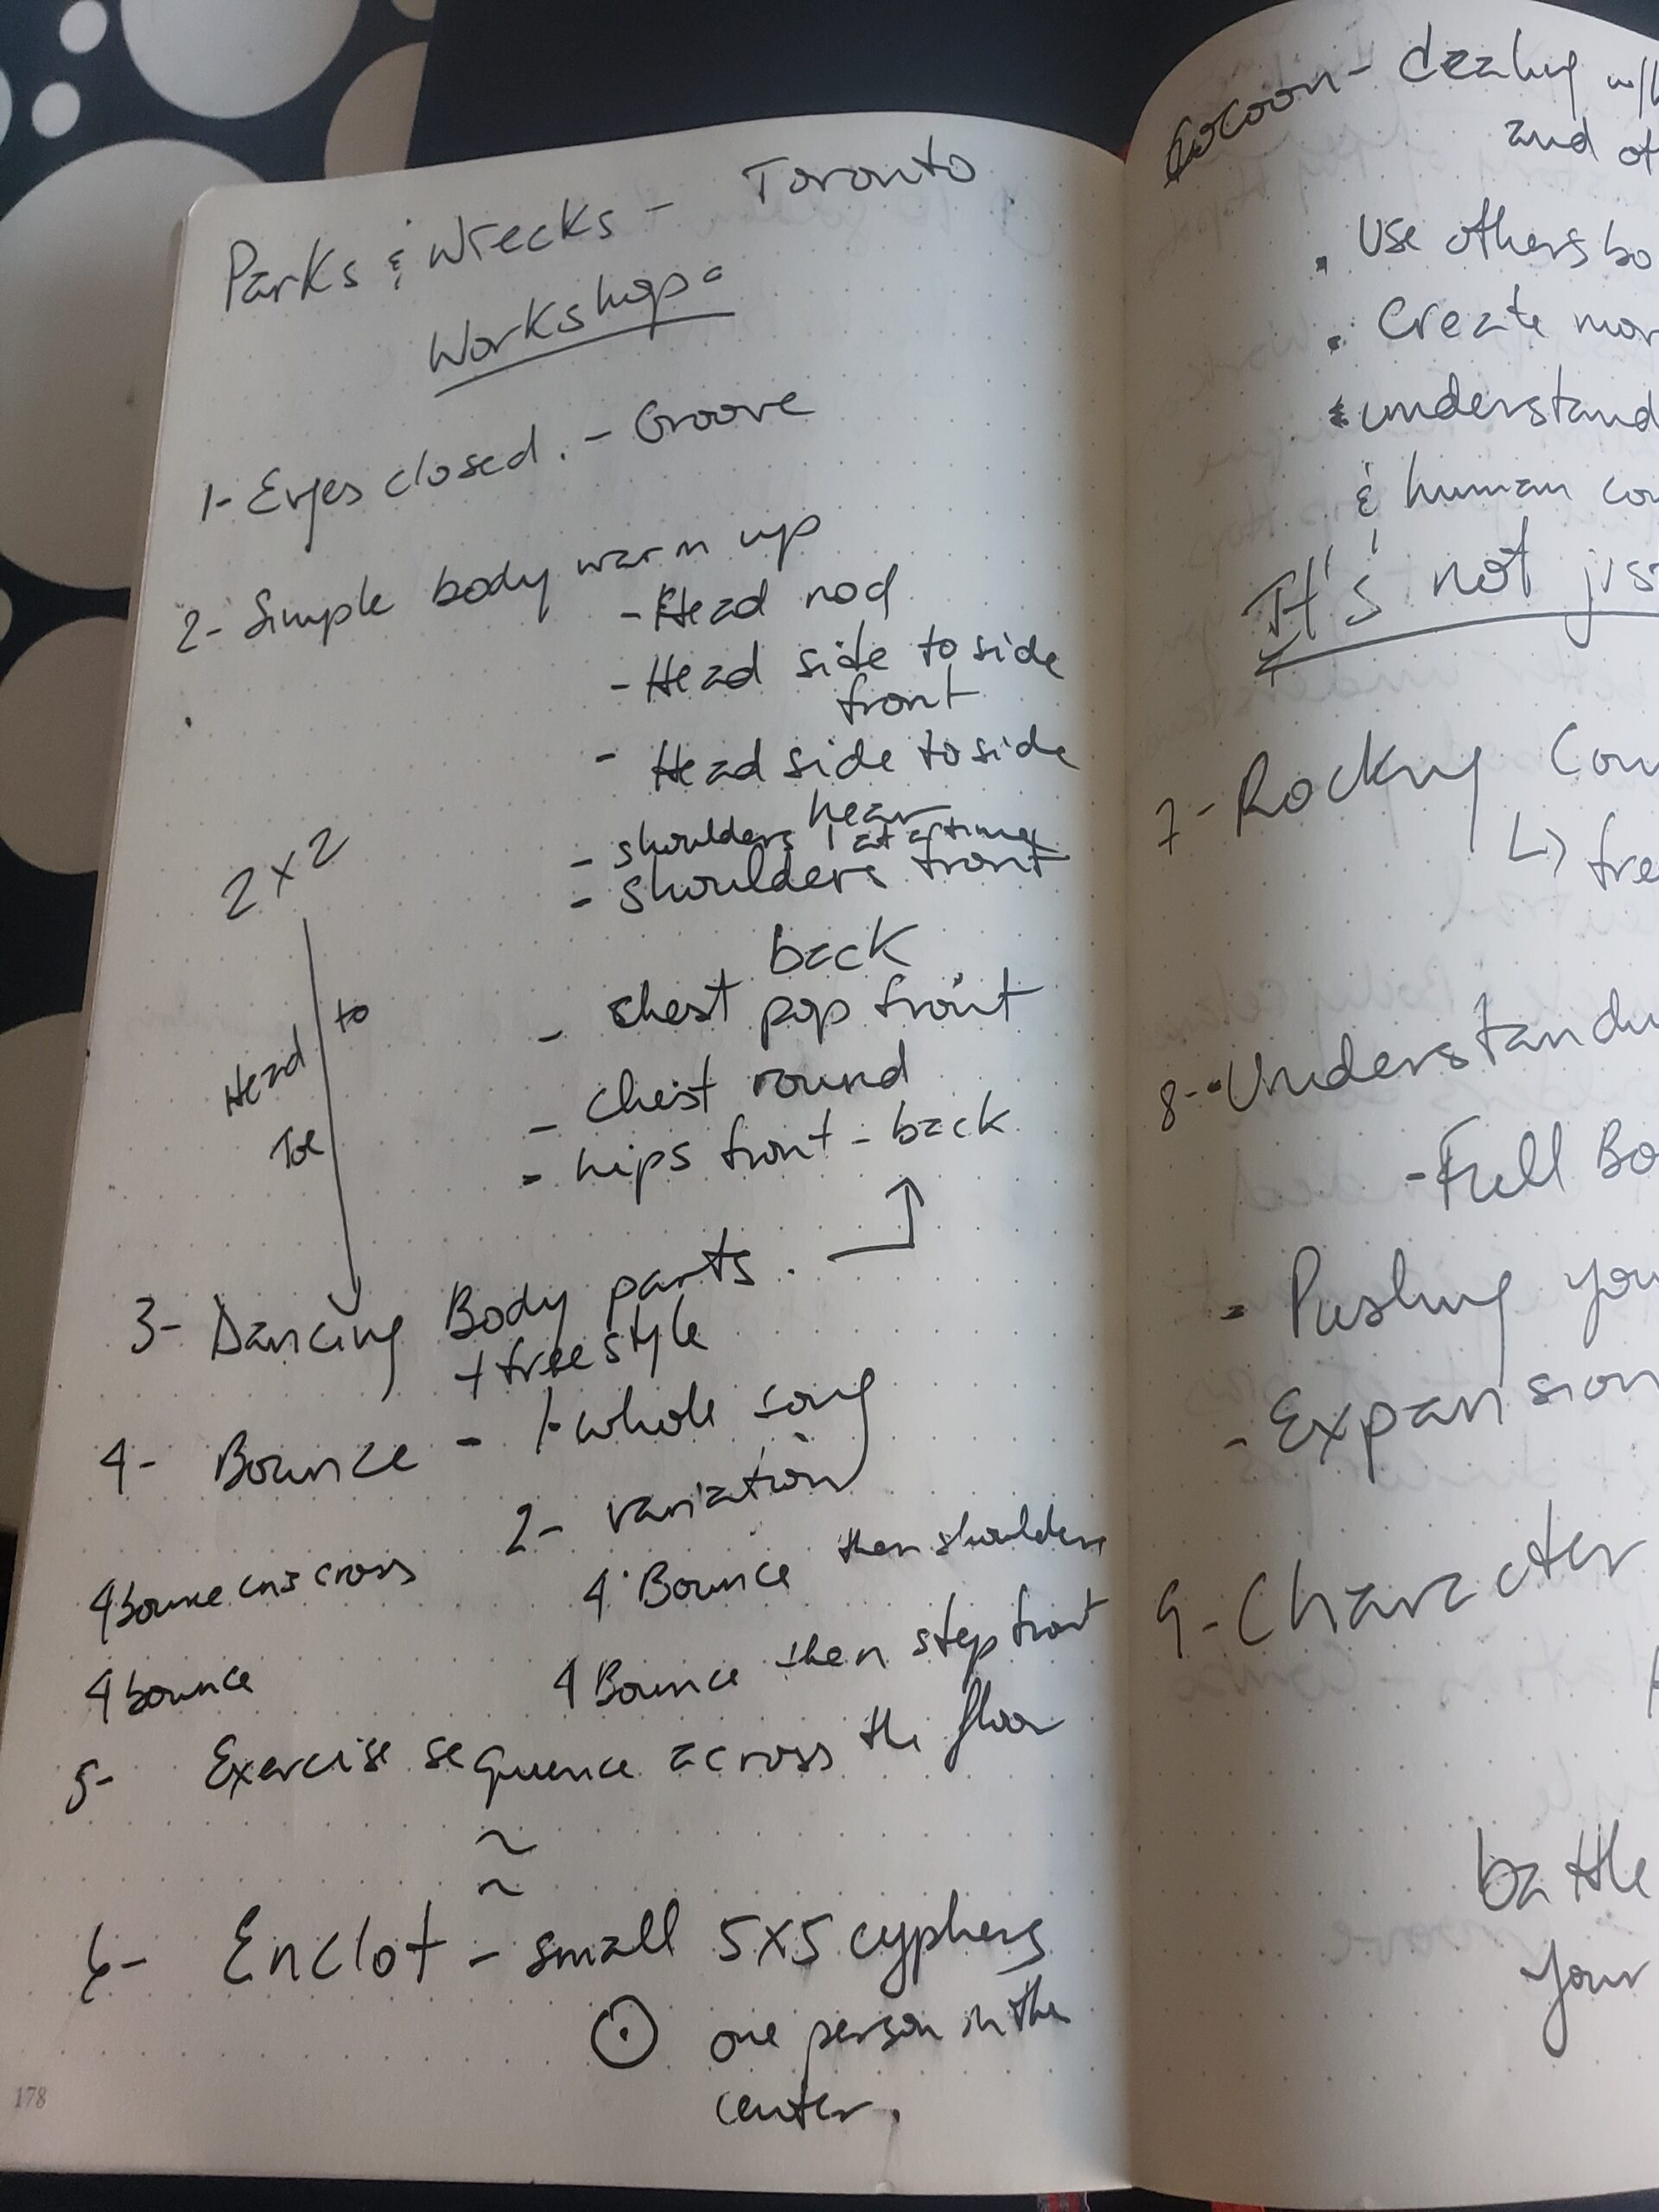 Parks & Wrecks - Toronto
Workshop:
1- Eyes closed. - Groove
2- Simple body warm up
- Head nod
- Head side to side
front
- Head side to side
near
- shoulders 1 at a time
- shoulders front
back
2x2
Head to
Toe
- chest pop front
- chest round
- hips front - back
3- Dancing Body parts.
+ freestyle
4- Bounce - 1- whole song
2- variation
4 bounce criss cross
4 Bounce then shoulders
4 bounce
4 Bounce then step front
5- Exercise sequence across the floor
~
~
6- Enclot - small 5x5 cyphers
one person in the
center.
178
Cocoon - dealing w/
and ot
• Use others bo
• Create mor
• understand
& human co
It's not jus
7- Rocking Com
↳ fre
8- Understandi
- Full Bo
- Pushing you
- Expansion
9- Character
battle
your